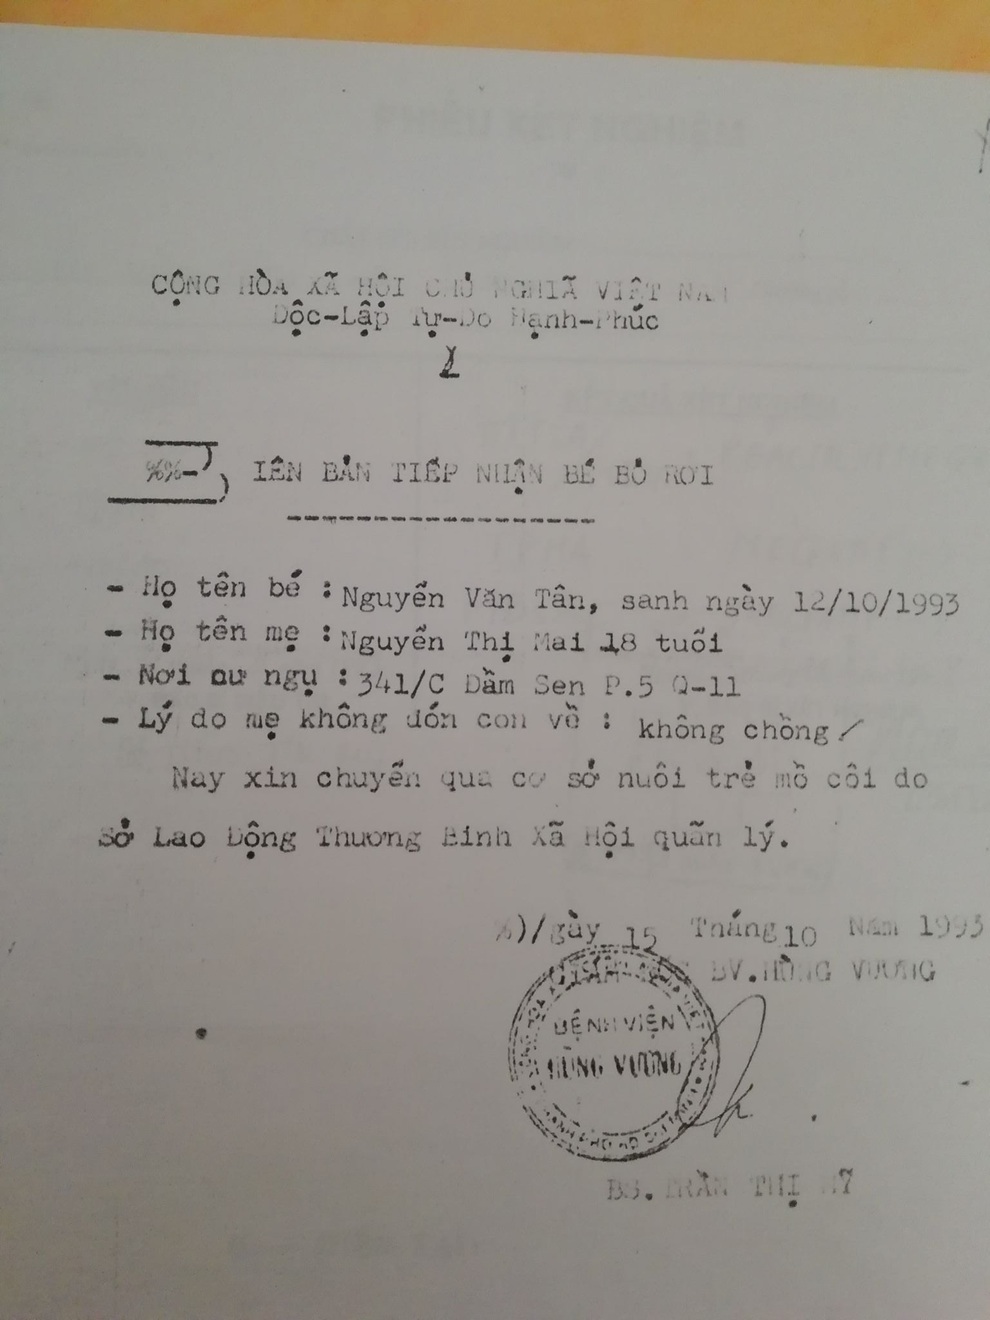 CỘNG HÒA XÃ HỘI CHỦ NGHIÃ VIỆT NAM
Độc-Lập Tự-Do Hạnh-Phúc
%%-) IÊN BẢN TIẾP NHẬN BÉ BỎ RƠI
- Họ tên bé : Nguyễn Văn Tân, sanh ngày 12/10/1993
- Họ tên mẹ : Nguyễn Thị Mai 18 tuổi
- Nơi cư ngụ : 341/C Đầm Sen P.5 Q-11
- Lý do mẹ không đón con về : không chồng /
Nay xin chuyển qua cơ sở nuôi trẻ mồ côi do
Sở Lao Động Thương Binh Xã Hội quãn lý.
%)/gày 15 Tháng 10 Năm 1993
BV.HÙNG VƯƠNG
BỆNH VIỆN
HÙNG VƯƠNG
BS. TRẦN THỊ MỸ